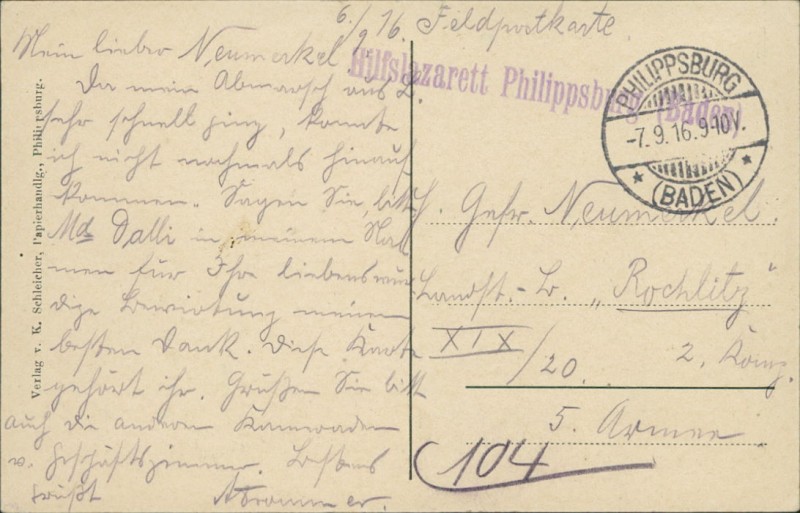 6./9.16.
Mein lieber Neumerkel!
Da mein Abmarsch aus L.
sehr schnell ging, konnte
ich nicht nochmals hinauf
kommen. Sagen Sie, bitte
Md Dalli in meinem Na-
men für Ihre liebenswür-
dige Bewirtung meinen
besten Dank. Diese Karte
gehört ihr. Grüßen Sie bitt
auch die anderen Kameraden
v. Geschäftszimmer. Bestens
grüßt
Feldpostkarte
Hilfslazarett Philippsburg (Baden)
PHILIPPSBURG
-7.9.16.9-10V.
* (BADEN) *
Gefr. Neumerkel.
Landst.-B. „Rochlitz"
XIX/20. 2. Komp.
5. Armee
104
Verlag v. K. Schleicher, Papierhandlg., Philippsburg.